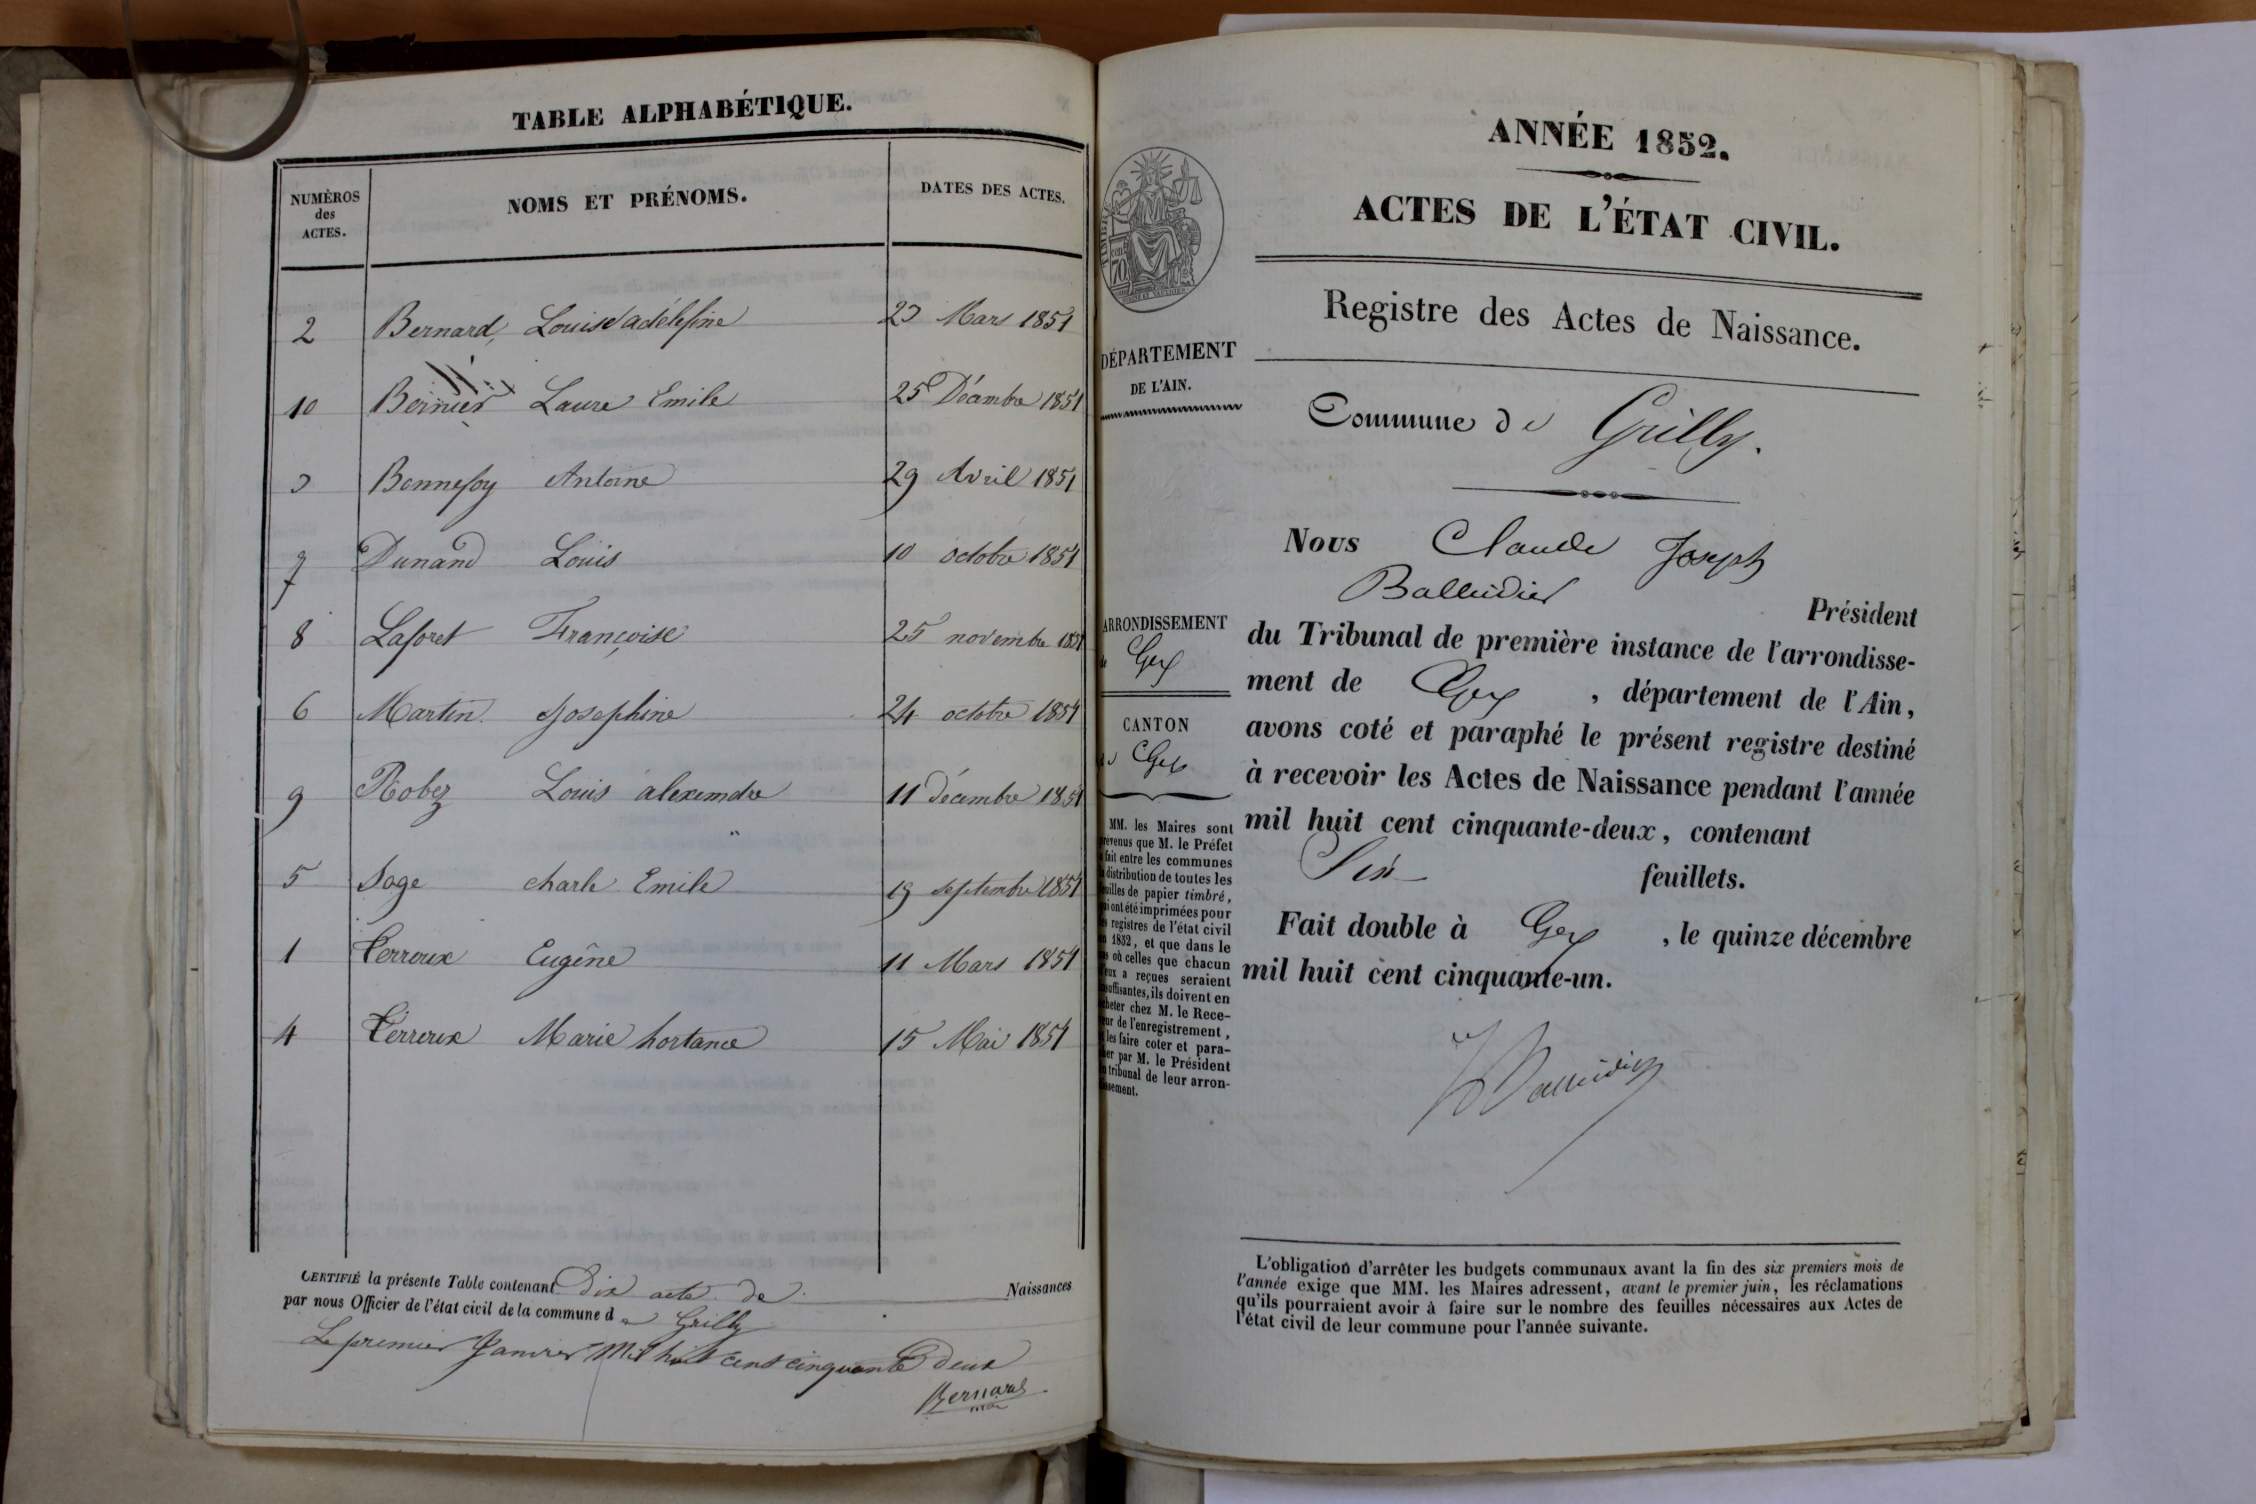 TABLE ALPHABÉTIQUE.
NUMÈROS
des
ACTES.
NOMS ET PRÉNOMS.
DATES DES ACTES.
2 Bernard, Louise adélefine 23 Mars 1851
10 Laure Emile 25 Décambre 1851
3 Bonnefoy Antoine 29 Avril 1851
7 Dunand Louis 10 octobre 1851
8 Laforet Françoise 25 novembre 1851
6 Martin Josephine 24 octobre 1851
9 Robez Louis alexendre 11 décembre 1851
5 Sage charle Emile 19 septembre 1851
1 Perroux Eugêne 11 Mars 1851
4 Perroux Marie hortance 15 Mai 1851
CERTIFIÉ la présente Table contenant Dix acte de Naissances
par nous Officier de l'état civil de la commune de Grilly
Le premier Janvier Mil huit cent cinquante Deux
Bernard
ANNÉE 1852.
ACTES DE L'ÉTAT CIVIL.
Registre des Actes de Naissance.
TIMBRE
70
DÉPARTEMENT
DE L'AIN.
Commune de Grilly.
ARRONDISSEMENT
de Gex
CANTON
de Gex
MM. les Maires sont
prévenus que M. le Préfet
a fait entre les communes
la distribution de toutes les
feuilles de papier timbré,
qui ont été imprimées pour
les registres de l'état civil
en 1852, et que dans le
cas où celles que chacun
d'eux a reçues seraient
insuffisantes, ils doivent en
acheter chez M. le Rece-
veur de l'enregistrement,
et les faire coter et para-
pher par M. le Président
du tribunal de leur arron-
dissement.
Nous Claude Joseph
Balleidier
Président
du Tribunal de première instance de l'arrondisse-
ment de Gex, département de l'Ain,
avons coté et paraphé le présent registre destiné
à recevoir les Actes de Naissance pendant l'année
mil huit cent cinquante-deux, contenant
Six feuillets.
Fait double à Gex, le quinze décembre
mil huit cent cinquante-un.
Balleidier
L'obligation d'arrêter les budgets communaux avant la fin des six premiers mois de
l'année exige que MM. les Maires adressent, avant le premier juin, les réclamations
qu'ils pourraient avoir à faire sur le nombre des feuilles nécessaires aux Actes de
l'état civil de leur commune pour l'année suivante.